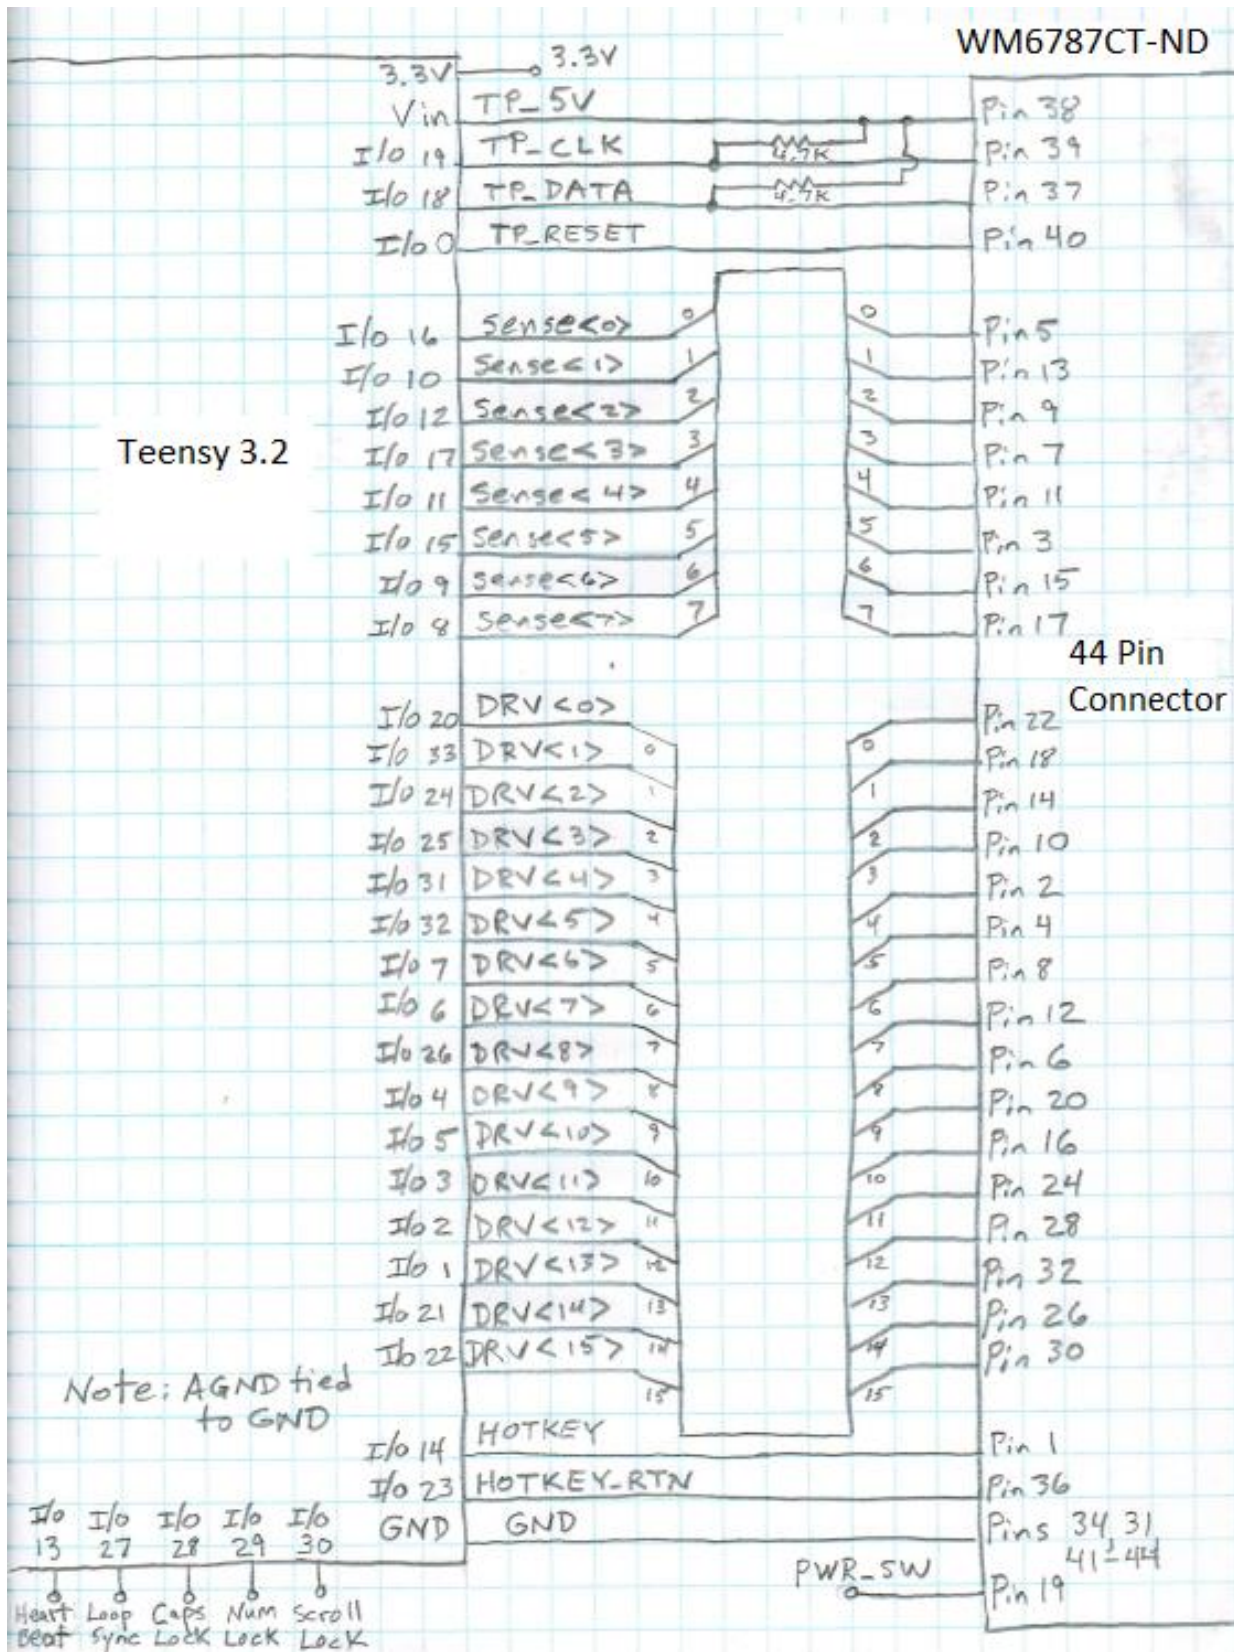 WM6787CT-ND
3.3V 3.3V
Vin TP_5V Pin 38
I/O 19 TP_CLK 4.7K Pin 39
I/O 18 TP_DATA 4.7K Pin 37
I/O 0 TP_RESET Pin 40
I/O 16 Sense<0> 0 0 Pin 5
I/O 10 Sense<1> 1 1 Pin 13
I/O 12 Sense<2> 2 2 Pin 9
Teensy 3.2
I/O 17 Sense<3> 3 3 Pin 7
I/O 11 Sense<4> 4 4 Pin 11
I/O 15 Sense<5> 5 5 Pin 3
I/O 9 Sense<6> 6 6 Pin 15
I/O 8 Sense<7> 7 7 Pin 17
44 Pin
Connector
I/O 20 DRV<0> Pin 22
I/O 33 DRV<1> 0 0 Pin 18
I/O 24 DRV<2> 1 1 Pin 14
I/O 25 DRV<3> 2 2 Pin 10
I/O 31 DRV<4> 3 3 Pin 2
I/O 32 DRV<5> 4 4 Pin 4
I/O 7 DRV<6> 5 5 Pin 8
I/O 6 DRV<7> 6 6 Pin 12
I/O 26 DRV<8> 7 7 Pin 6
I/O 4 DRV<9> 8 8 Pin 20
I/O 5 DRV<10> 9 9 Pin 16
I/O 3 DRV<11> 10 10 Pin 24
I/O 2 DRV<12> 11 11 Pin 28
I/O 1 DRV<13> 12 12 Pin 32
I/O 21 DRV<14> 13 13 Pin 26
I/O 22 DRV<15> 14 14 Pin 30
15 15
Note: AGND tied
to GND
I/O 14 HOTKEY Pin 1
I/O 23 HOTKEY_RTN Pin 36
GND GND Pins 34, 31,
41-44
PWR_SW Pin 19
I/O I/O I/O I/O I/O
13 27 28 29 30
Heart Loop Caps Num Scroll
Beat Sync Lock Lock Lock